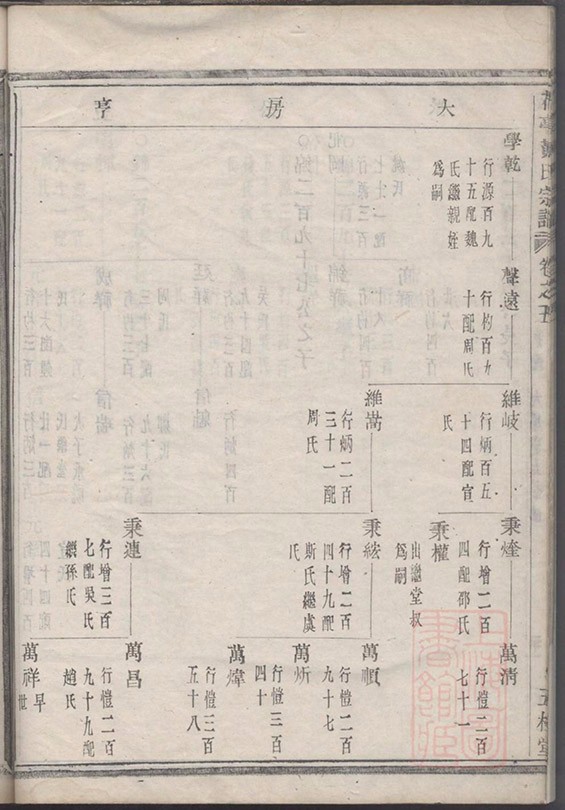 宗譜
卷之五
大房亨
學乾
行源百九
十五配魏
氏繼親姪
爲嗣
聲遠
行杓百九
十配周氏
維岐
行炳百五
十四配宣
氏
維嵩
行炳二百
三十一配
周氏
秉煃
行增二百
四配邵氏
秉權
出繼堂叔
爲嗣
秉
行增二百
四十九配
斯氏繼虞
氏
秉連
行增三百
七配吳氏
繼孫氏
萬清
行愷二百
七十一
萬頎
行愷二百
九十七
萬炘
行愷三百
四十
萬煒
行愷三百
五十八
萬昌
行愷二百
九十九配
趙氏
萬祥
早
世